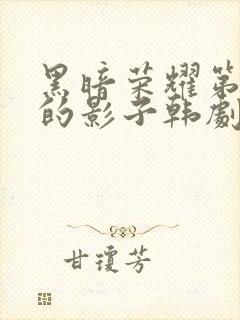 黑暗荣耀第
的影子韩劇
甘瓊芳